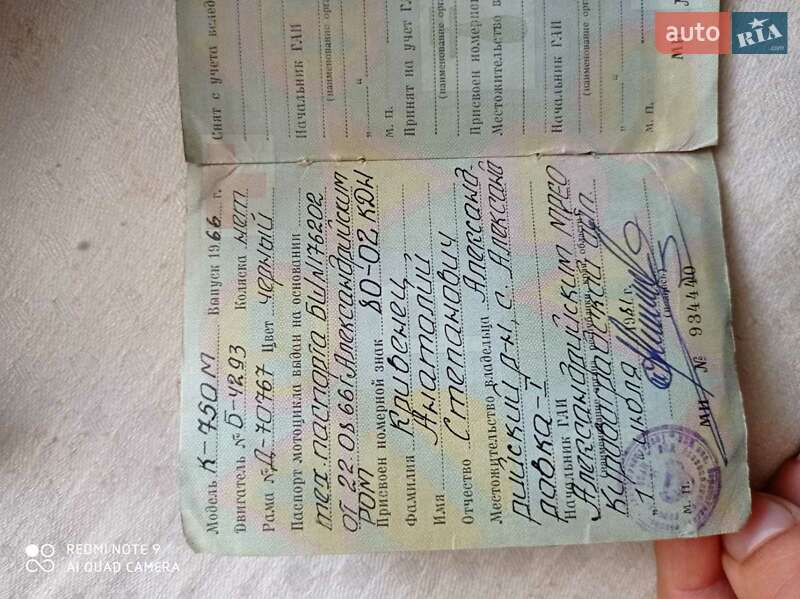 Снят с учета вслед
Начальник ГАИ
(наименование орг
"
М. П.
Принят на учет Г
(наименование орг
Присвоен номерной
Местожительство в
Начальник ГАИ
(наименование орг
"
М. П.
Модель К-750М Выпуск 1966 г.
Двигатель № Б-4293 Коляска нет
Рама № Д-70767 Цвет черный
Паспорт мотоцикла выдан на основании
тех. паспорта БШ №176202
от 22 08 66 г. Александрийским
РОМ
Присвоен номерной знак 80-02 КДН
Фамилия Кривенец
Имя Анатолий
Отчество Степанович
Местожительство владельца Александ-
рийский р-н с. Александ
Начальник ГАИ
Александрийским МРЭО
Кировоградской обл.
" 1 " июля 1981 г.
(подпись)
М. П.
МИ № 934440
auto RIA
.com
REDMI NOTE 9
AI QUAD CAMERA